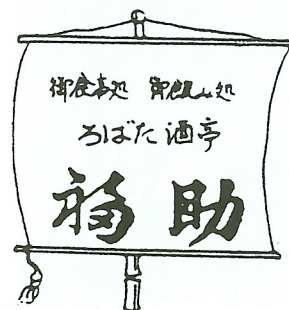 御食事処 御飲み処
ろばた酒亭
福助